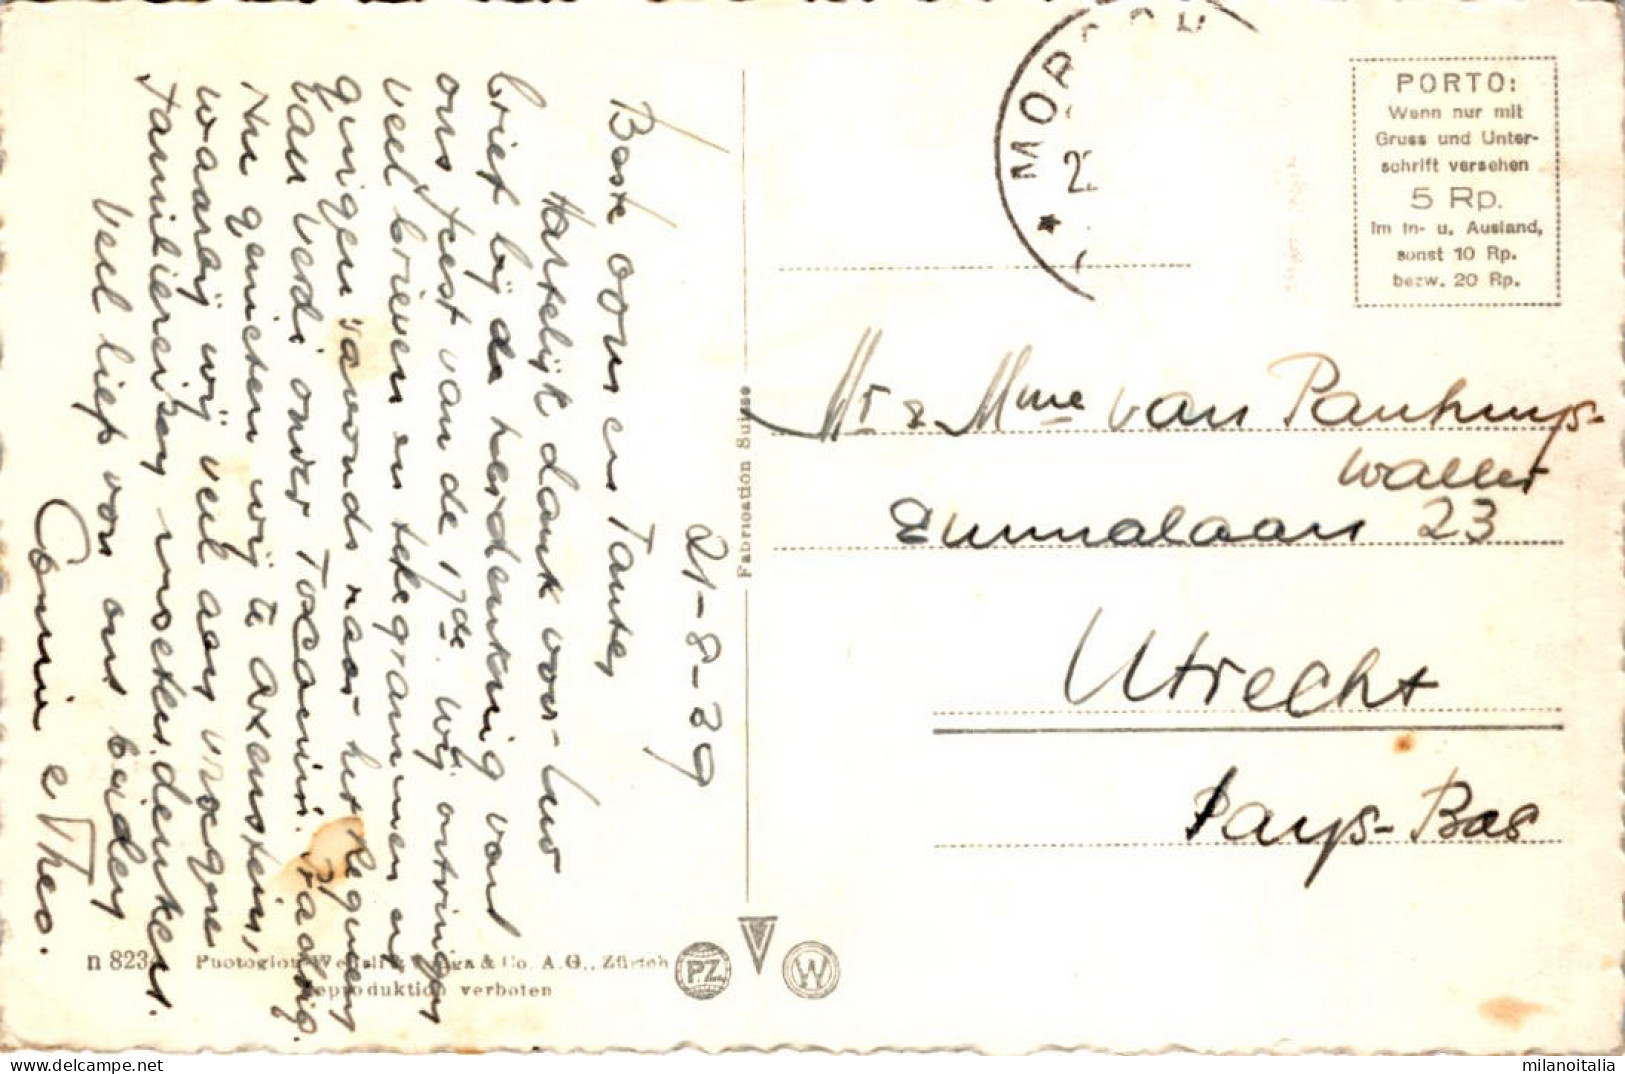 21-8-39
Beste oom en Tante,
Hartelijk dank voor Uw
brief bij de herdenking van
ons feest van de 17de. Wij ontvingen
veel brieven en telegrammen en
gingen 's avonds naar het Requiem
van Verdi onder Toscanini. Prachtig.
Nu genieten wij te Axenstein,
waarbij wij veel aan vroegere
familiereizen moeten denken.
Veel liefs van ons beiden
Connie e Theo.
n 823
Photoglob-Wehrli & Vouga & Co. A.G., Zürich
Reproduktion verboten
Fabrication Suisse
PZ
W
MOR
2
PORTO:
Wenn nur mit
Gruss und Unter-
schrift versehen
5 Rp.
im In- u. Ausland,
sonst 10 Rp.
bezw. 20 Rp.
Mr & Mme van Panhuys-
Waller
Emmalaan 23
Utrecht
Pays-Bas
milanoitalia